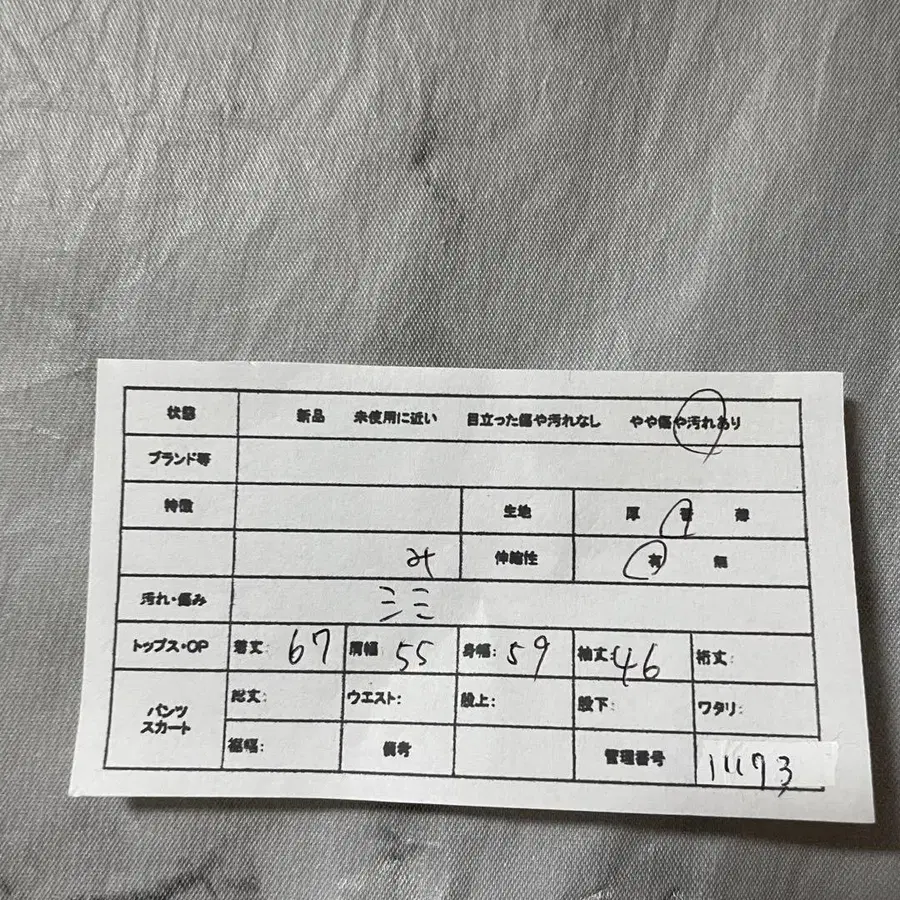 状態 新品 未使用に近い 目立った傷や汚れなし やや傷や汚れあり
ブランド等
特徴 生地 厚 普 薄
み 伸縮性 有 無
汚れ・傷み シミ
トップス・OP 着丈: 67 肩幅: 55 身幅: 59 袖丈: 46 裄丈:
パンツ スカート 総丈: ウエスト: 股上: 股下: ワタリ:
裾幅: 備考 管理番号 11173